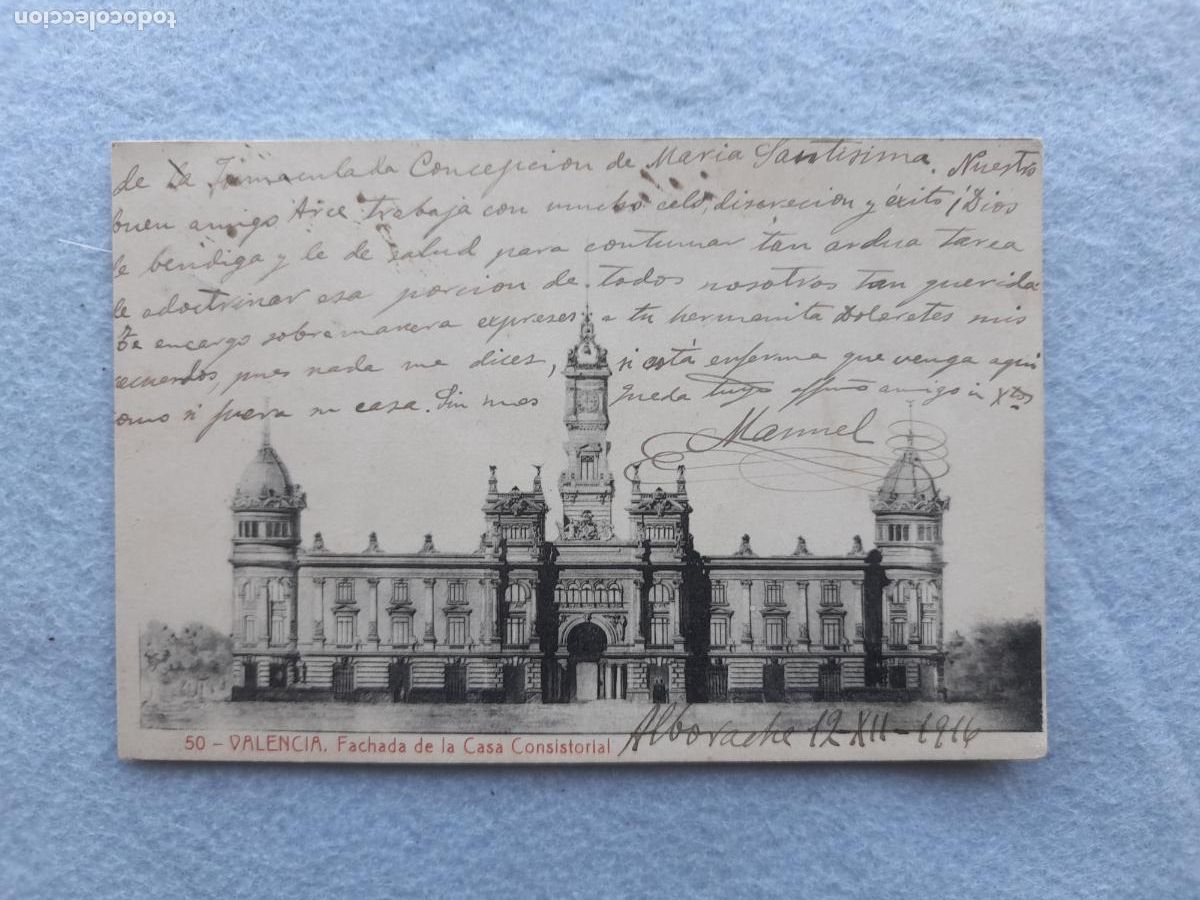 todocoleccion
de la Inmaculada Concepcion de Maria Santisima. Nuestro
buen amigo Arce trabaja con mucho celo, discrecion y éxito ¡Dios
le bendiga y le de salud para continuar tan ardua tarea
de adoctrinar esa porcion de todos nosotros tan querida
Te encargo sobremanera expreses a tu hermanita Dolores mis
recuerdos, pues nada me dices, si está enferma que venga aqui
como si fuera su casa. Sin mas queda tuyo affmo amigo in Xto
Manuel
50 - VALENCIA. Fachada de la Casa Consistorial
Alborache 12-XII-1916